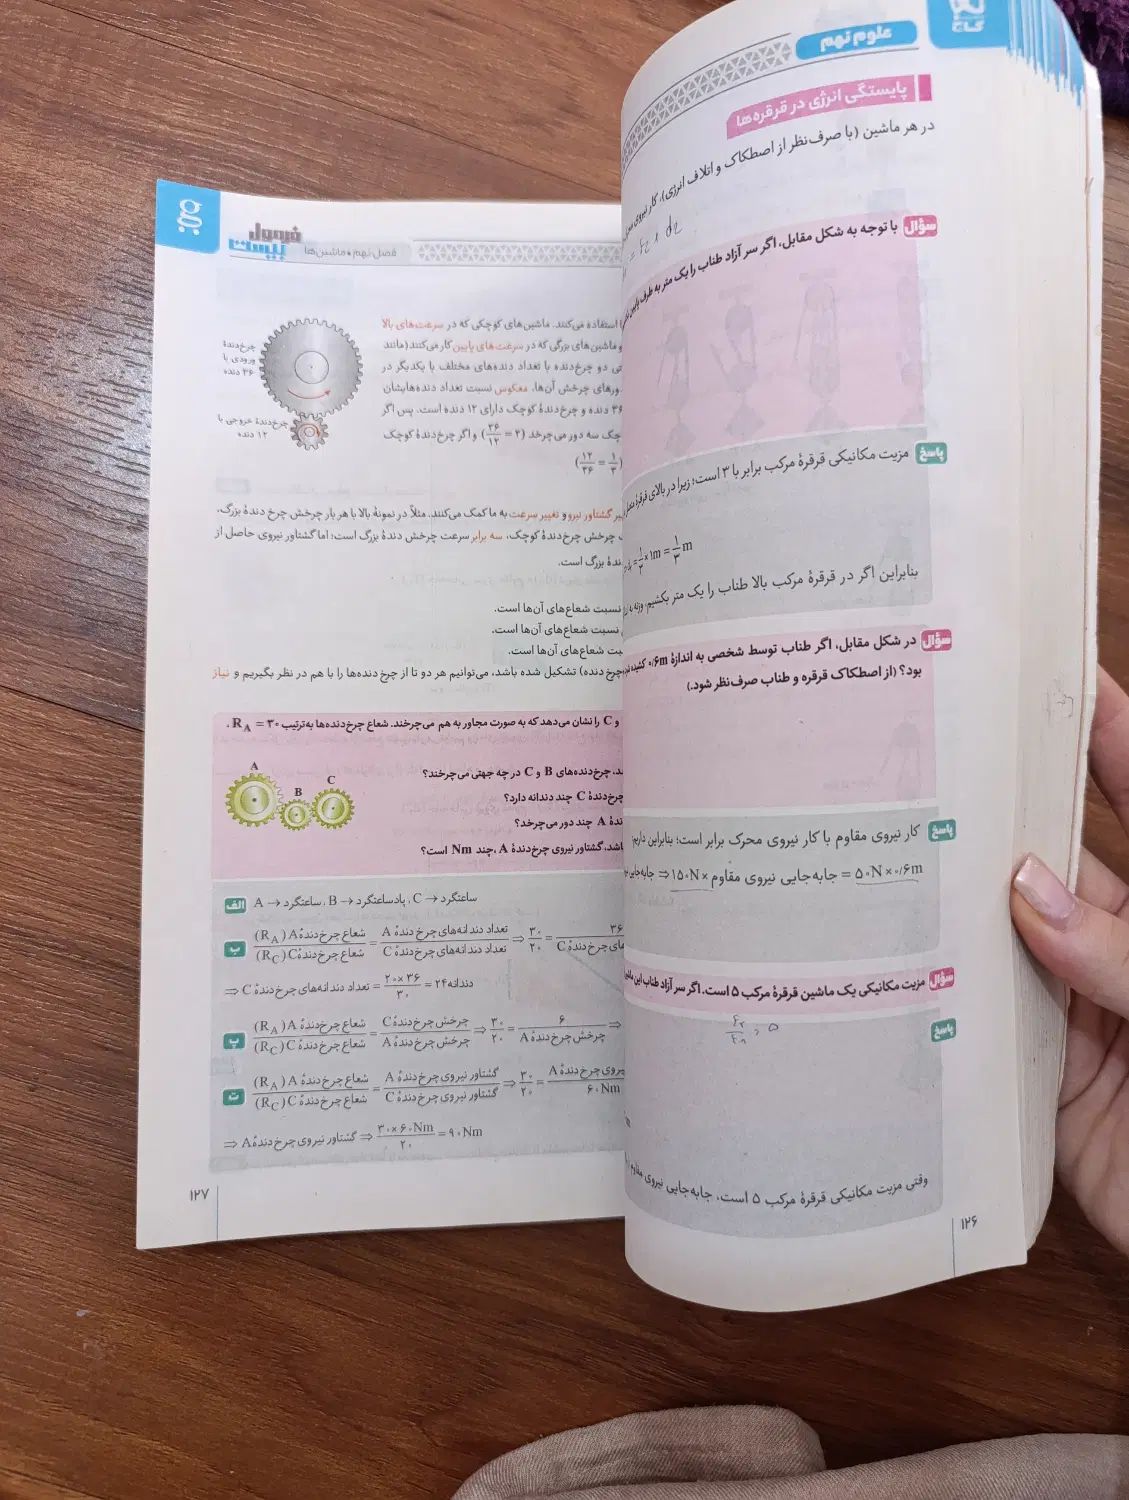 گاج
علوم نهم
پایستگی انرژی در قرقره‌ها
در هر ماشین (با صرف‌نظر از اصطکاک و اتلاف انرژی)، کار نیروی
سؤال با توجه به شکل مقابل، اگر سر آزاد طناب را یک متر به طرف پایین
پاسخ مزیت مکانیکی قرقرهٔ مرکب برابر با ۳ است؛ زیرا در بالای قرقرهٔ
= ۱/۳ × ۱m = ۱/۳ m
بنابراین اگر در قرقرهٔ مرکب بالا طناب را یک متر بکشیم، وزنه به
سؤال در شکل مقابل، اگر طناب توسط شخصی به اندازهٔ ۰/۶m کشیده
بود؟ (از اصطکاک قرقره و طناب صرف‌نظر شود.)
پاسخ کار نیروی مقاوم با کار نیروی محرک برابر است؛ بنابراین داریم:
۵۰N × ۰/۶m = جابه‌جایی نیروی مقاوم × ۱۵۰N ⇒ جابه‌جایی
سؤال مزیت مکانیکی یک ماشین قرقرهٔ مرکب ۵ است. اگر سر آزاد طناب این
پاسخ
وقتی مزیت مکانیکی قرقرهٔ مرکب ۵ است، جابه‌جایی نیروی مقاوم
۱۲۶
فرمول بیست
فصل نهم • ماشین‌ها
استفاده می‌کنند. ماشین‌های کوچکی که در سرعت‌های بالا
و ماشین‌های بزرگی که در سرعت‌های پایین کار می‌کنند (مانند
تی دو چرخ‌دنده با تعداد دنده‌های مختلف با یکدیگر در
دورهای چرخش آن‌ها، معکوس نسبت تعداد دنده‌هایشان
۳۶ دنده و چرخ‌دندهٔ کوچک دارای ۱۲ دنده است. پس اگر
چک سه دور می‌چرخد (۳۶/۱۲ = ۳) و اگر چرخ‌دندهٔ کوچک
(۱۲/۳۶ = ۱/۳)
چرخ‌دندهٔ
ورودی با
۳۶ دنده
چرخ‌دندهٔ خروجی با
۱۲ دنده
ییر گشتاور نیرو و تغییر سرعت به ما کمک می‌کنند. مثلاً در نمونهٔ بالا با هر بار چرخش چرخ دندهٔ بزرگ،
چرخش چرخ‌دندهٔ کوچک، سه برابر سرعت چرخش دندهٔ بزرگ است؛ اما گشتاور نیروی حاصل از
دندهٔ بزرگ است.
نسبت شعاع‌های آن‌ها است.
نسبت شعاع‌های آن‌ها است.
سبت شعاع‌های آن‌ها است.
چرخ دنده) تشکیل شده باشد، می‌توانیم هر دو تا از چرخ دنده‌ها را با هم در نظر بگیریم و نیاز
و C را نشان می‌دهد که به صورت مجاور به هم می‌چرخند. شعاع چرخ‌دنده‌ها به‌ترتیب R_A = ۳۰،
ند، چرخ‌دنده‌های B و C در چه جهتی می‌چرخند؟
چرخ‌دندهٔ C چند دندانه دارد؟
دندهٔ A چند دور می‌چرخد؟
باشد، گشتاور نیروی چرخ‌دندهٔ A، چند Nm است؟
A
B
C
الف A → ساعتگرد، B → پادساعتگرد، C → ساعتگرد
ب شعاع چرخ‌دندهٔ A (R_A) / شعاع چرخ‌دندهٔ C (R_C) = تعداد دندانه‌های چرخ‌دندهٔ A / تعداد دندانه‌های چرخ‌دندهٔ C ⇒ ۳۰/۲۰ = ۳۶
⇒ تعداد دندانه‌های چرخ‌دندهٔ C = ۲۰×۳۶ / ۳۰ = ۲۴ دندانه
پ شعاع چرخ‌دندهٔ A (R_A) / شعاع چرخ‌دندهٔ C (R_C) = چرخش چرخ‌دندهٔ C / چرخش چرخ‌دندهٔ A ⇒ ۳۰/۲۰ = ۶ / چرخش چرخ‌دندهٔ A ⇒
ت شعاع چرخ‌دندهٔ A (R_A) / شعاع چرخ‌دندهٔ C (R_C) = گشتاور نیروی چرخ‌دندهٔ A / گشتاور نیروی چرخ‌دندهٔ C ⇒ ۳۰/۲۰ = یروی چرخ‌دندهٔ A / ۶۰Nm
⇒ گشتاور نیروی چرخ‌دندهٔ A ⇒ ۳۰×۶۰Nm / ۲۰ = ۹۰Nm
۱۲۷